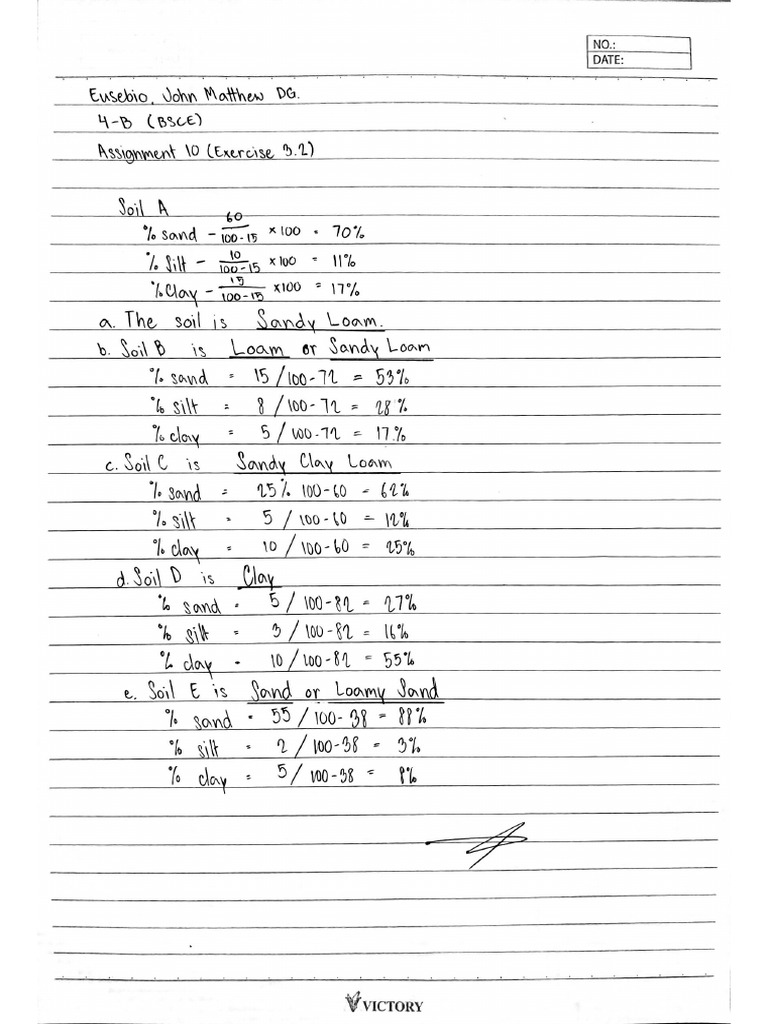 NO.:
DATE:
Eusebio, John Matthew DG.
4-B (BSCE)
Assignment 10 (Exercise 3.2)
Soil A
% sand - 60/100-15 ×100 = 70%
% Silt - 10/100-15 ×100 = 11%
% Clay - 15/100-15 ×100 = 17%
a. The soil is Sandy Loam.
b. Soil B is Loam or Sandy Loam
% sand = 15/100-72 = 53%
% silt = 8/100-72 = 28%
% clay = 5/100-72 = 17%
c. Soil C is Sandy Clay Loam
% sand = 25% 100-60 = 62%
% silt = 5/100-60 = 12%
% clay = 10/100-60 = 25%
d. Soil D is Clay
% sand = 5/100-82 = 27%
% silt = 3/100-82 = 16%
% clay = 10/100-82 = 55%
e. Soil E is Sand or Loamy Sand
% sand = 55/100-38 = 88%
% silt = 2/100-38 = 3%
% clay = 5/100-38 = 8%
VICTORY